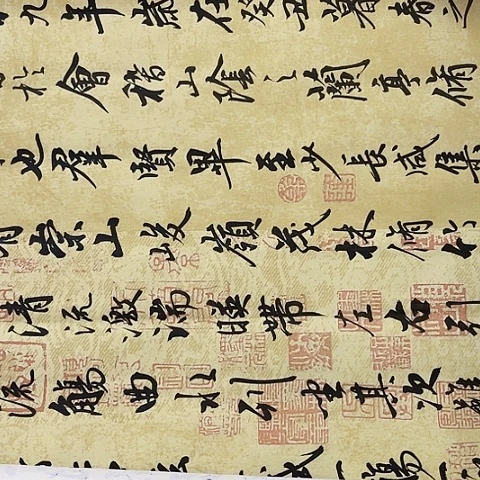 九年歲在癸丑暮春之
於會稽山陰之蘭亭脩
也群賢畢至少長咸集
有崇山峻領茂林脩竹
清流激湍暎帶左右引
流觴曲水列坐其次雖
一觴一